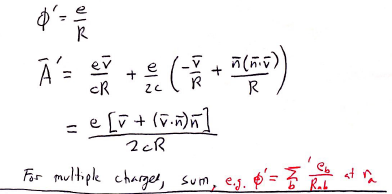 ϕ' = e/R
Ā' = e v̄/cR + e/2c (-v̄/R + n̄(n̄·v̄)/R)
= e [v̄ + (v̄·n̄)n̄]/2cR
For multiple charges, sum, e.g. ϕ' = Σ'_b e_b/R_ab at r_a